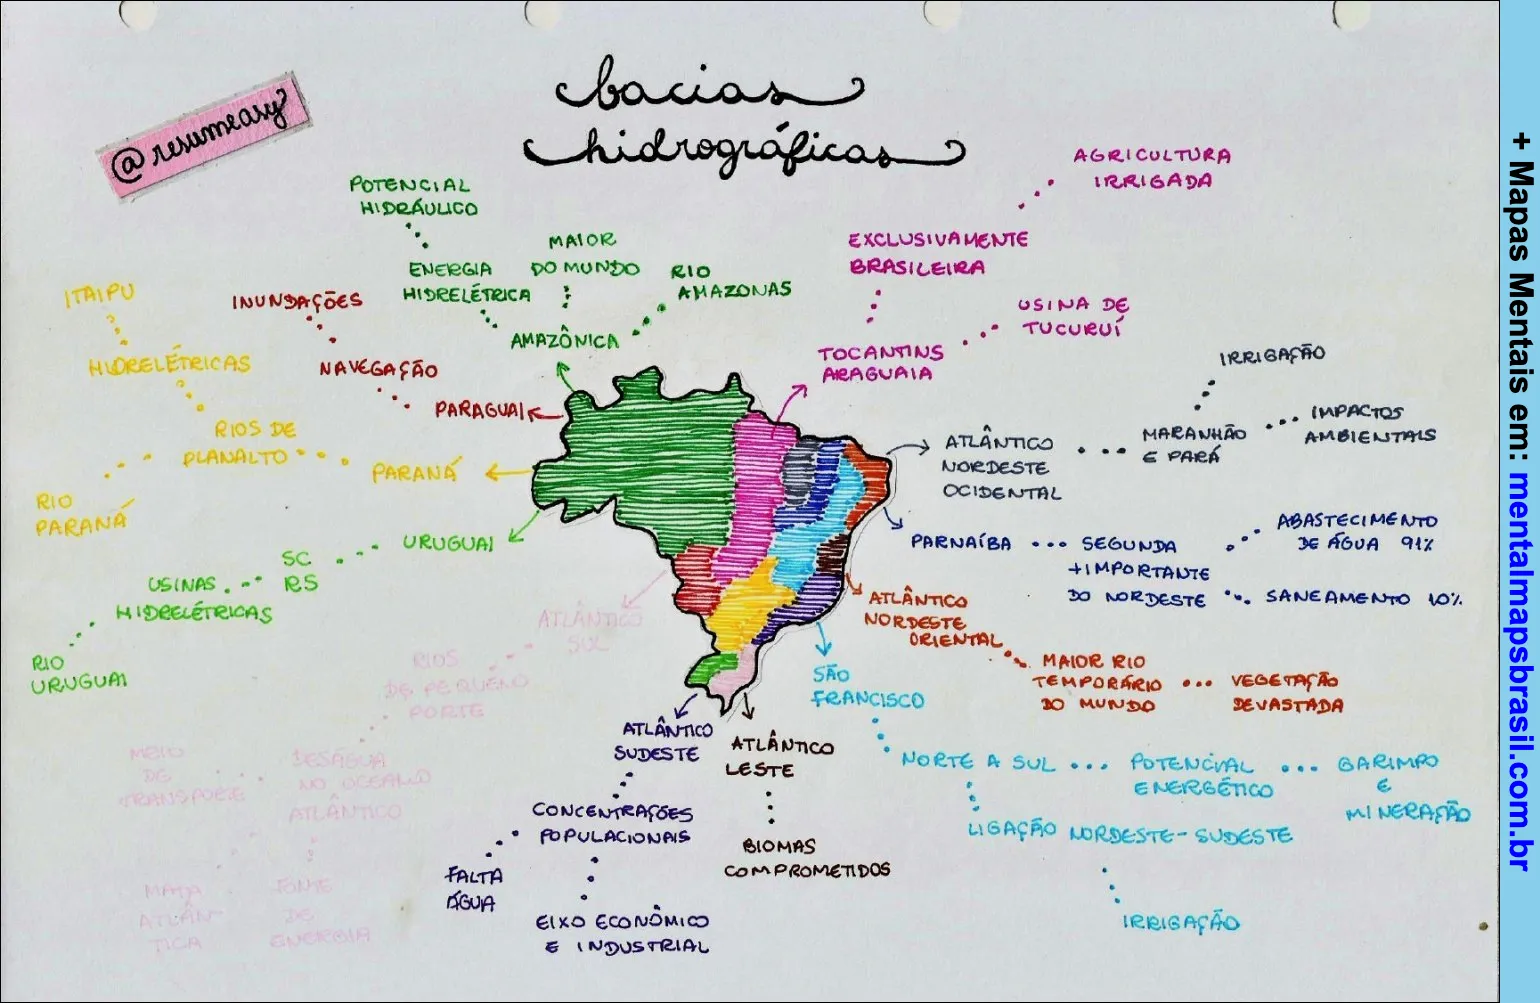 @resumeasy
bacias
hidrográficas
POTENCIAL
HIDRÁULICO
ENERGIA
HIDRELÉTRICA
MAIOR
DO MUNDO
RIO
AMAZONAS
AMAZÔNICA
INUNDAÇÕES
NAVEGAÇÃO
PARAGUAI
ITAIPU
HIDRELÉTRICAS
RIOS DE
PLANALTO
PARANÁ
RIO
PARANÁ
URUGUAI
SC
RS
USINAS
HIDRELÉTRICAS
RIO
URUGUAI
ATLÂNTICO
SUL
RIOS
DE PEQUENO
PORTE
DESÁGUA
NO OCEANO
ATLÂNTICO
MEIO
DE
TRANSPORTE
MATA
ATLÂN-
TICA
FONTE
DE
ENERGIA
ATLÂNTICO
SUDESTE
CONCENTRAÇÕES
POPULACIONAIS
FALTA
ÁGUA
EIXO ECONÔMICO
E INDUSTRIAL
ATLÂNTICO
LESTE
BIOMAS
COMPROMETIDOS
AGRICULTURA
IRRIGADA
EXCLUSIVAMENTE
BRASILEIRA
USINA DE
TUCURUÍ
TOCANTINS
ARAGUAIA
ATLÂNTICO
NORDESTE
OCIDENTAL
MARANHÃO
E PARÁ
IRRIGAÇÃO
IMPACTOS
AMBIENTAIS
PARNAÍBA
SEGUNDA
+IMPORTANTE
DO NORDESTE
ABASTECIMENTO
DE ÁGUA 91%
SANEAMENTO 10%
ATLÂNTICO
NORDESTE
ORIENTAL
MAIOR RIO
TEMPORÁRIO
DO MUNDO
VEGETAÇÃO
DEVASTADA
SÃO
FRANCISCO
NORTE A SUL
POTENCIAL
ENERGÉTICO
GARIMPO
E
MINERAÇÃO
LIGAÇÃO NORDESTE-SUDESTE
IRRIGAÇÃO
+ Mapas Mentais em: mentalmapsbrasil.com.br